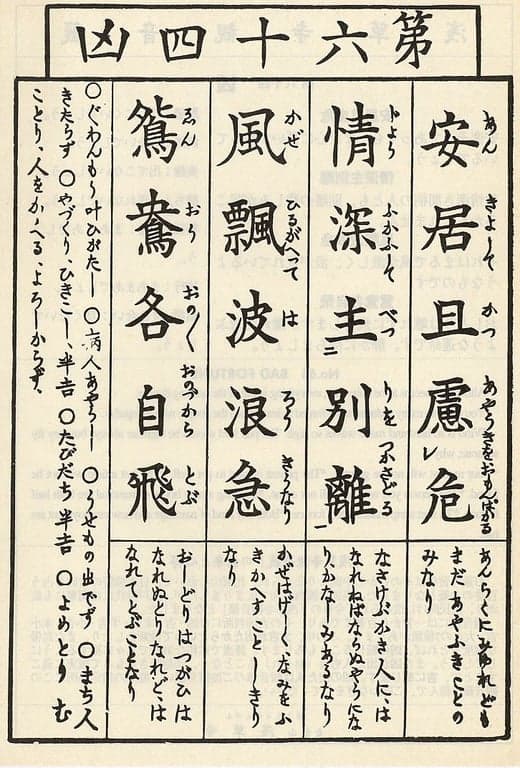 第六十四凶
安居且慮レ危
あんきよしかつあやうきをおもんばかる
あんらくにみゆれども
まだあやふきことの
みなり
情深主二別離一
じようふかふしてべつりをつかさどる
なさけぶかき人には
なれねばならぬやうにな
り、かなしみあるなり
風飄波浪急
かぜひるがへつてはろうきうなり
かぜはげし、なみをふ
きかへすことしきり
なり
鴛鴦各自飛
ゑんおうおの〱おのづからとぶ
おしどりはつがひは
なれぬとりなれど、は
なれてとぶことなり
〇ぐわんもう叶ひがたし 〇病人あやうし 〇うせもの出でず 〇まち人
きたらず 〇やづくり、ひきこし、半吉 〇たびだち半吉 〇よめとり む
ことり、人をかゝへる、よろしからず、